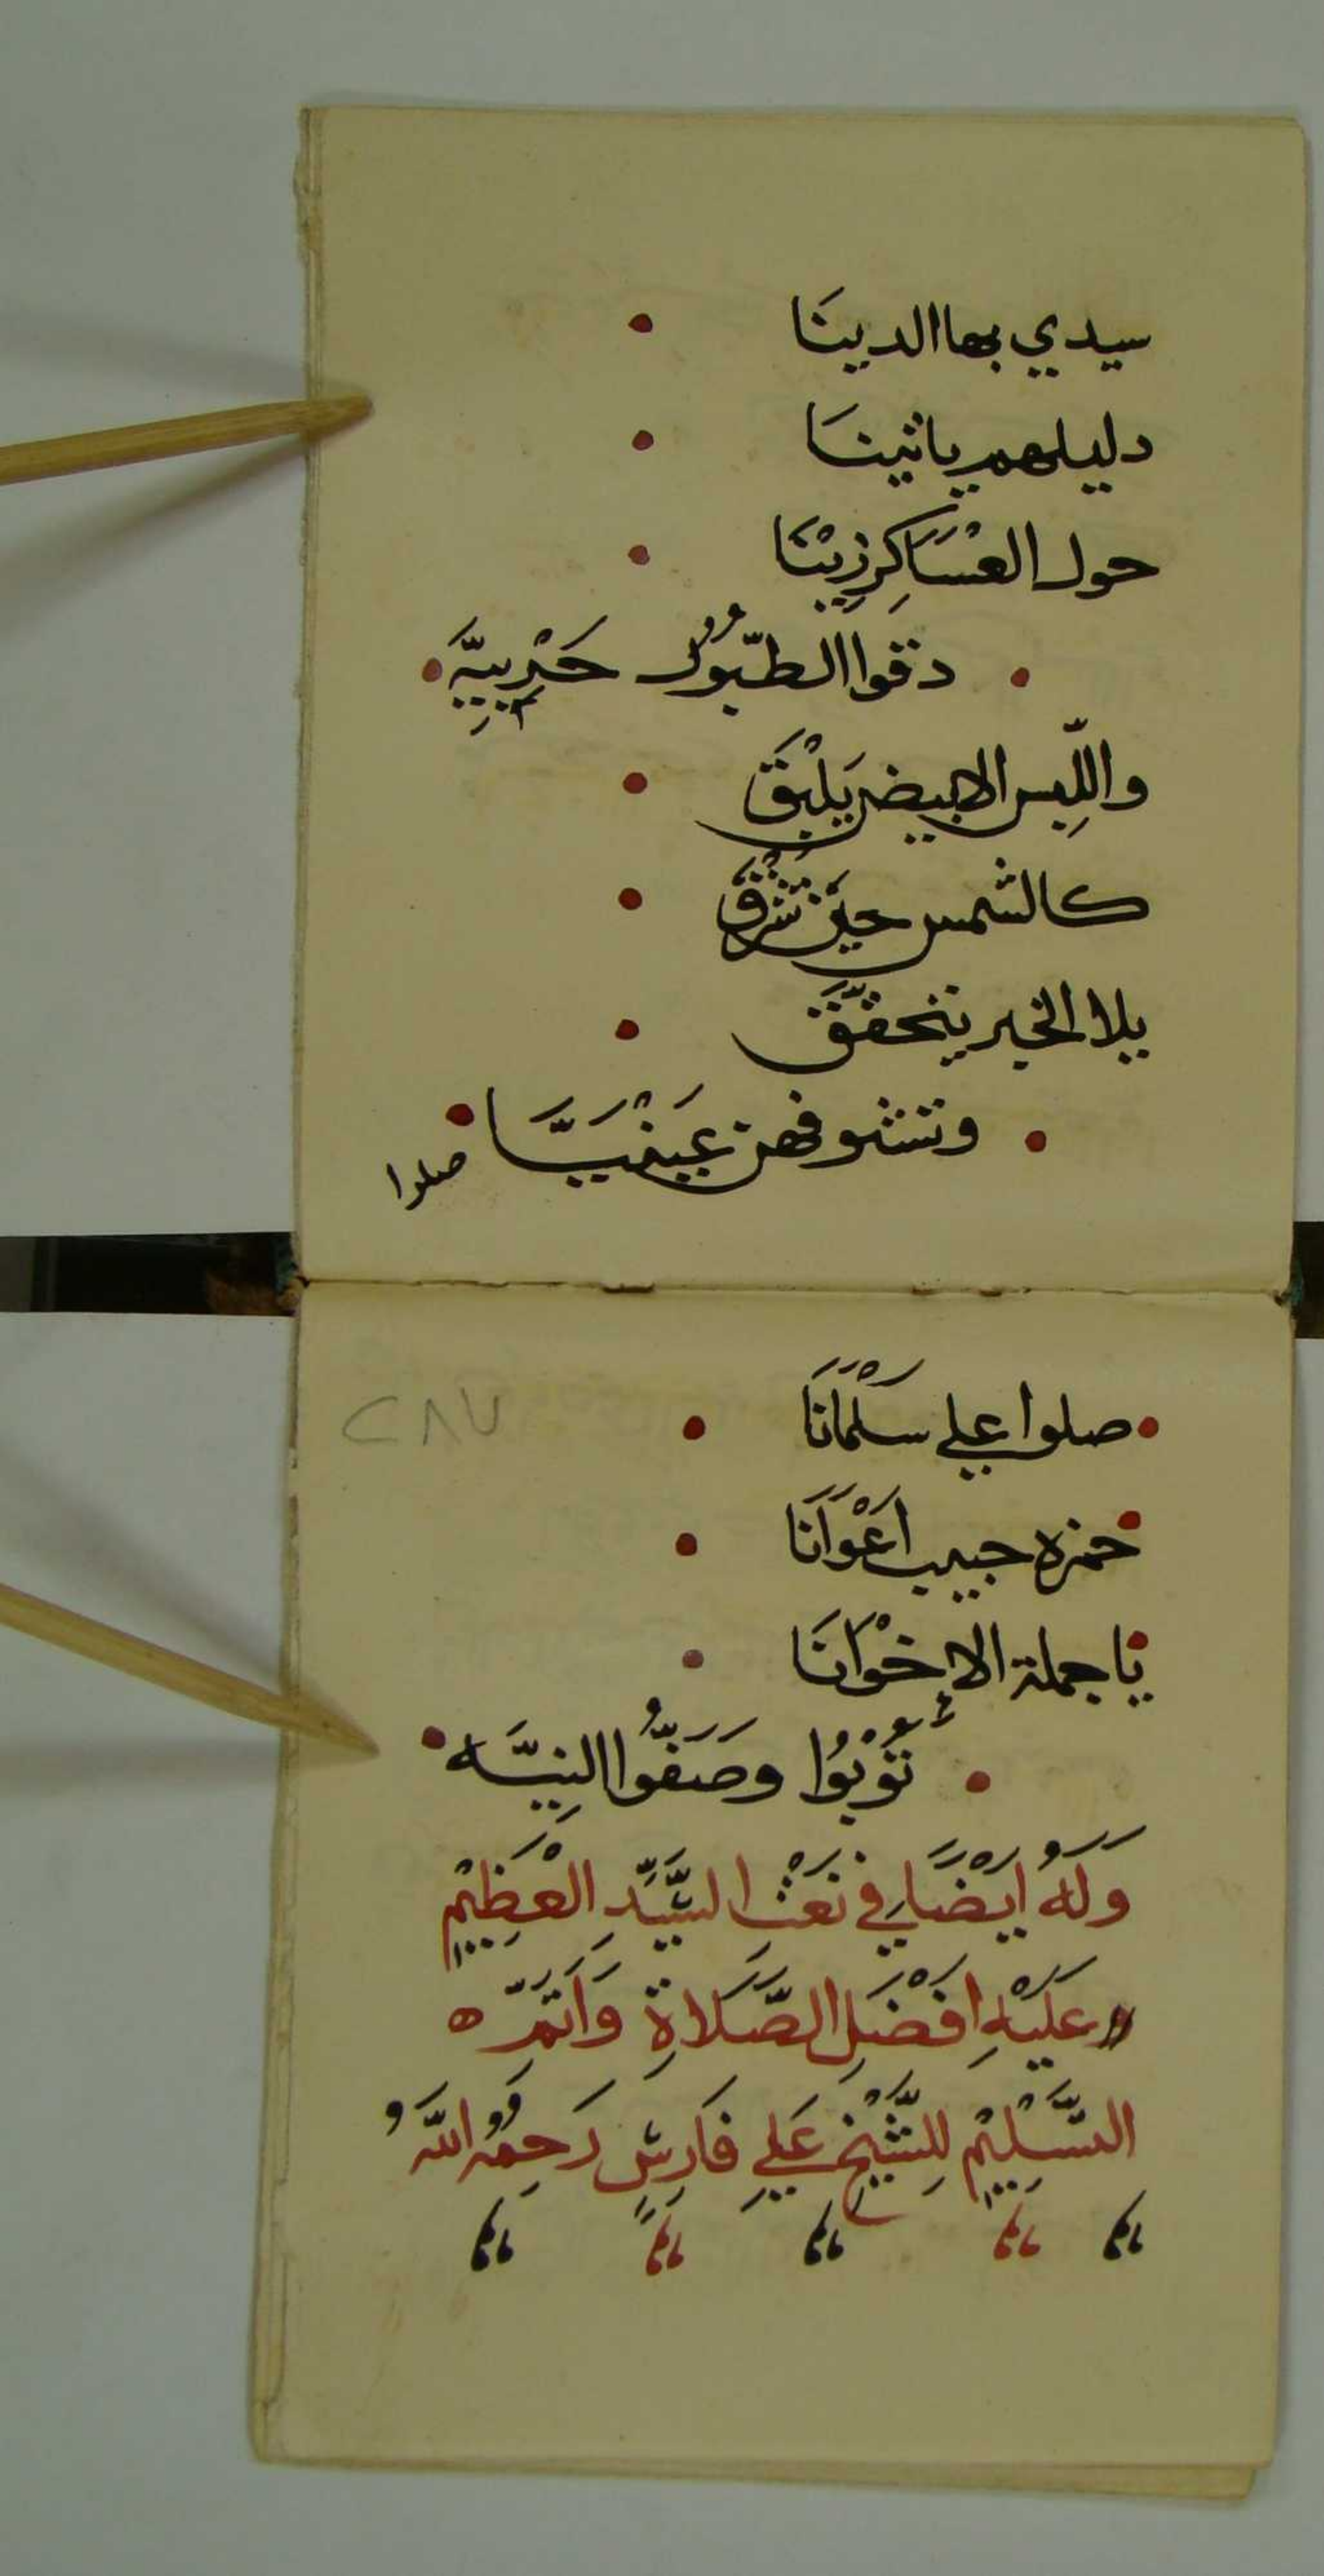 سيدي بهاالدينَا
دليلهم ياتينَا
حول العْسَاكِر زِيْنَا
دقوا الطبُّوُل حَرْبِيَّه
واللِّبس الابيض يَلْبَقَ
كالشمس حين تشْرُق
يلا الخير يتحقَّقَ
وتشوفهن عَيْنَيَّا
صلوا
صلوا علي سَلْمَانَا
حمزه حبيب اعْوَانَا
يَا جملة الاخْوَانَا
تُوْبُوا وصَفُّوا النِيَّه
٢٨٧
وَلَهُ ايْضَا في نَعْت السَّيِّدِ الْعَظِيْمِ
عَلَيْهِ افْضَل الصَّلَاةِ وَاَتَمّ
التَّسْلِيْمِ لِلشَّيْخ عَلِي فَارِسٍ رَحِمَهُ اللّهُ